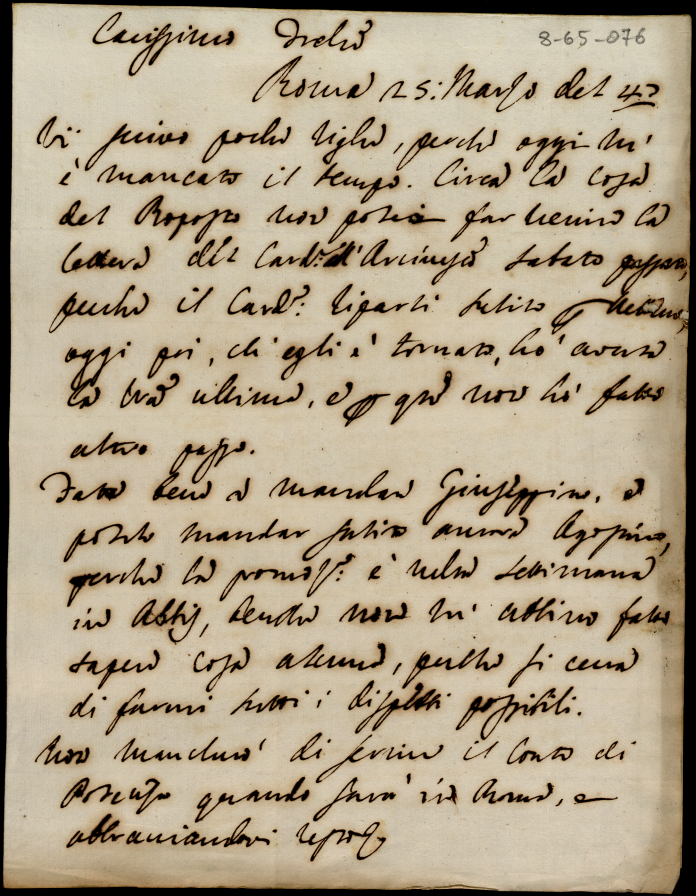 Carissimo Frello
8-65-076
Roma 25: Marzo del 42
Vi scrivo poche righe, perche oggi m'
è mancato il tempo. Circa la cosa
del Proposto non potei far venire la
lettera del Card.e d' sabato passato,
perche il Card.e riparti subito
oggi poi, ch'egli è tornato, ho avuta
la vrã ultima, e non hò fatto
altro passo.
Fate bene a mandar Giuseppino, e
potete mandar subito ancora Agostino,
perche la è nella settimana
in Albis, benche non m' abbino fatto
sapere cosa alcuna, perche si cerca
di farmi tutti i dispetti possibili.
Non mancherò di servire il Conte di
quando sarà in Roma, e
abbracciandovi resto